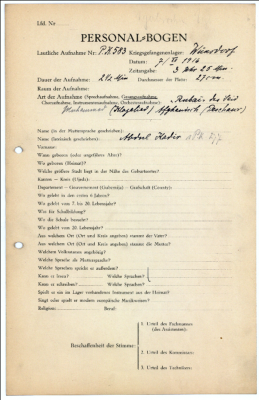 Lfd. Nr.
PERSONAL-BOGEN
Lautliche Aufnahme Nr.: P.K. 593 Kriegsgefangenenlager: Wünsdorf
Datum:
Zeitangabe: 3 Uhr 25 Min.
Dauer der Aufnahme: 2 ½ Min Durchmesser der Platte: 27 cm
Raum der Aufnahme:
Art der Aufnahme (Sprechaufnahme, Gesangsaufnahme,
Choraufnahme, Instrumentenaufnahme, Orchesteraufnahme):
(Klagelied) Afghanisch (Peschawar)
Name (in der Muttersprache geschrieben):
Name (lateinisch geschrieben): Abdul Kadir
Vorname:
Wann geboren (oder ungefähres Alter)?
Wo geboren (Heimat)?
Welche größere Stadt liegt in der Nähe des Geburtsortes?
Kanton — Kreis (Ujedz):
Departement — Gouvernement (Gubernija) — Grafschaft (County):
Wo gelebt in den ersten 6 Jahren?
Wo gelebt vom 7. bis 20. Lebensjahr?
Was für Schulbildung?
Wo die Schule besucht?
Wo gelebt vom 20. Lebensjahr?
Aus welchem Ort (Ort und Kreis angeben) stammt der Vater?
Aus welchem Ort (Ort und Kreis angeben) stammt die Mutter?
Welchem Volksstamm angehörig?
Welche Sprache als Muttersprache?
Welche Sprachen spricht er außerdem?
Kann er lesen? Welche Sprachen?
Kann er schreiben? Welche Sprachen?
Spielt er ein im Lager vorhandenes Instrument aus der Heimat?
Singt oder spielt er modern europäische Musikweisen?
Religion: Beruf:
Beschaffenheit der Stimme:
1. Urteil des Fachmannes
(des Assistenten):
2. Urteil des Kommissars:
3. Urteil des Technikers: